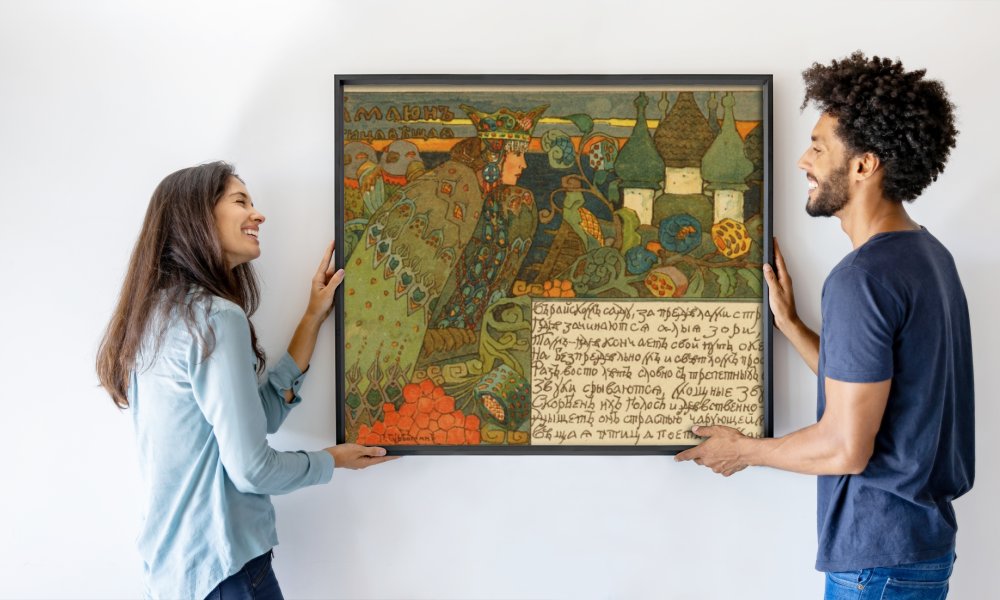 АМАЮНЪ
ТИЦА ВѢЩАЯ
Въ райскомъ саду, за предѣлами стр
Гдѣ зачинаются алыя зори,
Тамъ гдѣ кончаетъ свой путь оке
На безпредѣльномъ и свѣтломъ про
Разъ во сто лѣтъ словно съ трепетны
Звуки срываются, мощные зву
Скорбенъ ихъ голосъ и дѣвственно
Дышетъ онъ страстью чарующей
Вѣщая птица поетъ